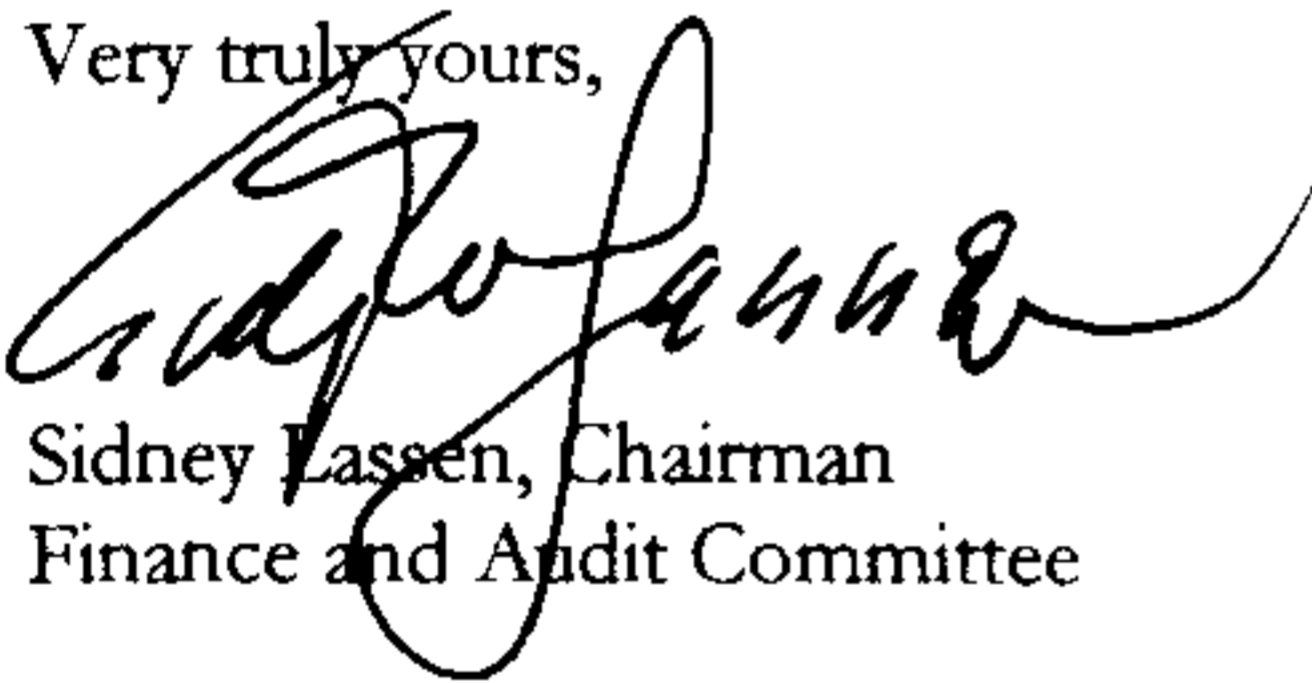 Very truly yours,
Sidney Lassen
Sidney Lassen, Chairman
Finance and Audit Committee